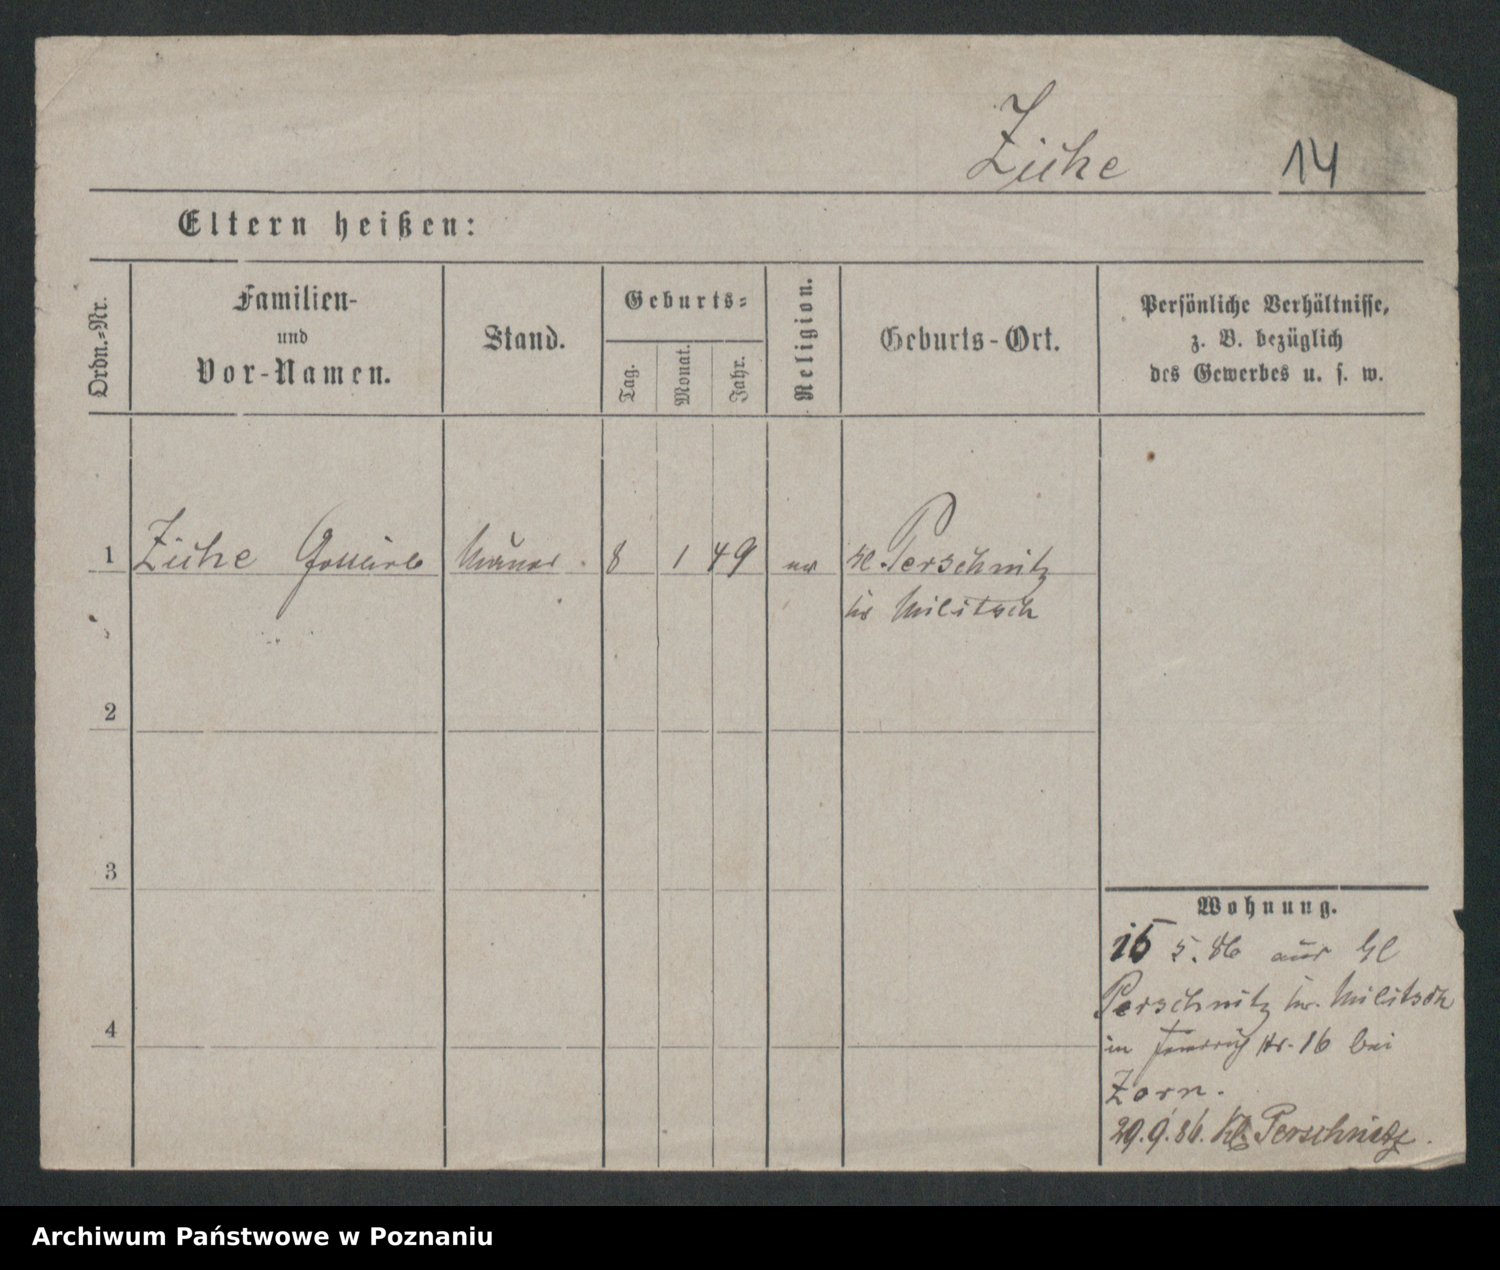 Zuhe 14
Eltern heißen:
Ordn.-Nr.
Familien-
und
Vor-Namen.
Stand.
Geburts-
Tag.
Monat.
Jahr.
Religion.
Geburts-Ort.
Persönliche Verhältnisse,
z. B. bezüglich
des Gewerbes u. s. w.
1 Zuhe Gottlieb Maurer. 8 1 49 ev Kl. Perschnitz
Kr Militsch
2
3
4
Wohnung.
15 5. 86 aus Kl
Perschnitz Kr. Militsch
in Nr. 16 bei
Zorn.
29.9.86. Kl Perschnitz.
Archiwum Państwowe w Poznaniu